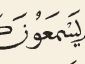 يَسْمَعُونَ